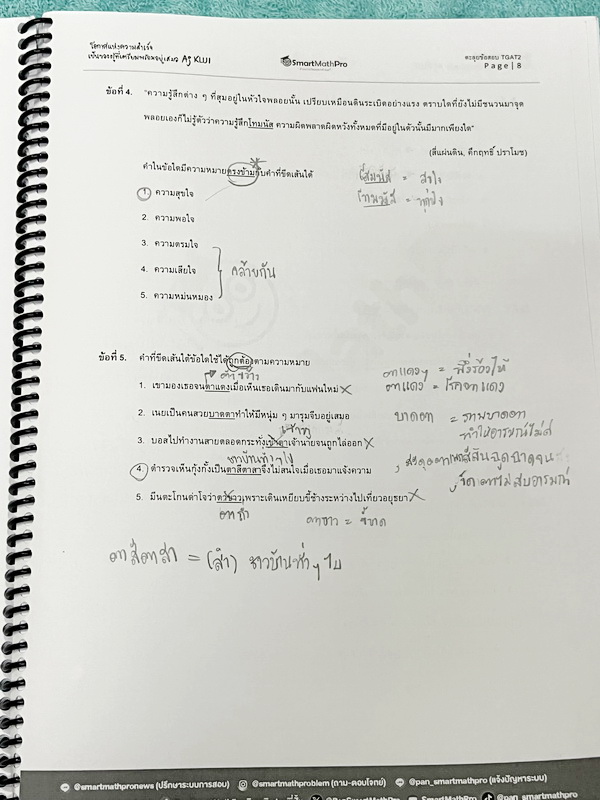 โอกาสแห่งความสำเร็จ
เป็นของผู้ที่เตรียมพร้อมอยู่เสมอ Aj KLUI
SmartMathPro
ตะลุยข้อสอบ TGAT2
Page | 8
ข้อที่ 4. "ความรู้สึกต่าง ๆ ที่สุมอยู่ในหัวใจพลอยนั้น เปรียบเหมือนดินระเบิดอย่างแรง ตราบใดที่ยังไม่มีชนวนมาจุด
พลอยเองก็ไม่รู้ตัวว่าความรู้สึกโทมนัส ความผิดพลาดผิดหวังทั้งหมดที่มีอยู่ในตัวนั้นมีมากเพียงใด"
(สี่แผ่นดิน, คึกฤทธิ์ ปราโมช)
คำในข้อใดมีความหมายตรงข้ามกับคำที่ขีดเส้นใต้
โสมนัส = สุขใจ
1. ความสุขใจ
โทมนัส = ทุกข์ใจ
2. ความพอใจ
3. ความตรมใจ
4. ความเสียใจ
คล้ายกัน
5. ความหม่นหมอง
ข้อที่ 5. คำที่ขีดเส้นใต้ข้อใดใช้ได้ถูกต้องตามความหมาย
ตาแดงๆ = พึ่งร้องไห้
ตาขวาง
1. เขามองเธอจนตาแดงเมื่อเห็นเธอเดินมากับแฟนใหม่ X
ตาแดง = โรคตาแดง
2. เนยเป็นคนสวยบาดตาทำให้มีหนุ่ม ๆ มารุมจีบอยู่เสมอ
บาดตา = ภาพบาดตา
ทำให้อารมณ์ไม่ดี
3. บอสไปทำงานสายตลอดกระทั่งเข้าตาเจ้านายจนถูกไล่ออก X
ชาวบ้านทั่วๆไป
4. ตำรวจเห็นกุ้งกั้งเป็นตาสีตาสาจึงไม่สนใจเมื่อเธอมาแจ้งความ
5. มีนตะโกนด่าโจว่าตาขาวเพราะเดินเหยียบขี้ช้างระหว่างไปเที่ยวอยุธยา X
ตาขาว = ขี้ขลาด
ตาสีตาสา = (สำ) ชาวบ้านทั่วๆ ไป
@smartmathpronews (ปรึกษาระบบการสอบ) @smartmathproblem (ถาม-ตอบโจทย์) @pan_smartmathpro (แจ้งปัญหาระบบ)
SmartMathPro @pan_smartmathpro